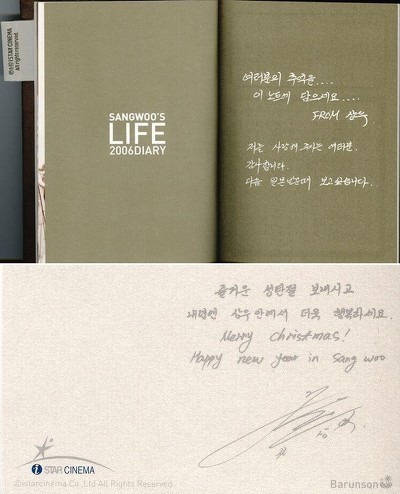 ©(주)ISTAR CINEMA
All rights reserved.
SANGWOO'S
LIFE
2006DIARY
여러분의 추억을....
이 노트에 담으세요....
FROM 상우
저를 사랑해 주시는 여러분.
감사합니다.
다들 일본만큼이나 보고싶습니다.
즐거운 성탄절 보내시고
내년엔 상우안에서 더욱 행복하세요.
Merry christmas!
Happy new year in Sang woo
i STAR CINEMA
©istarcinema Co.,Ltd All Rights Reserved
Barunson